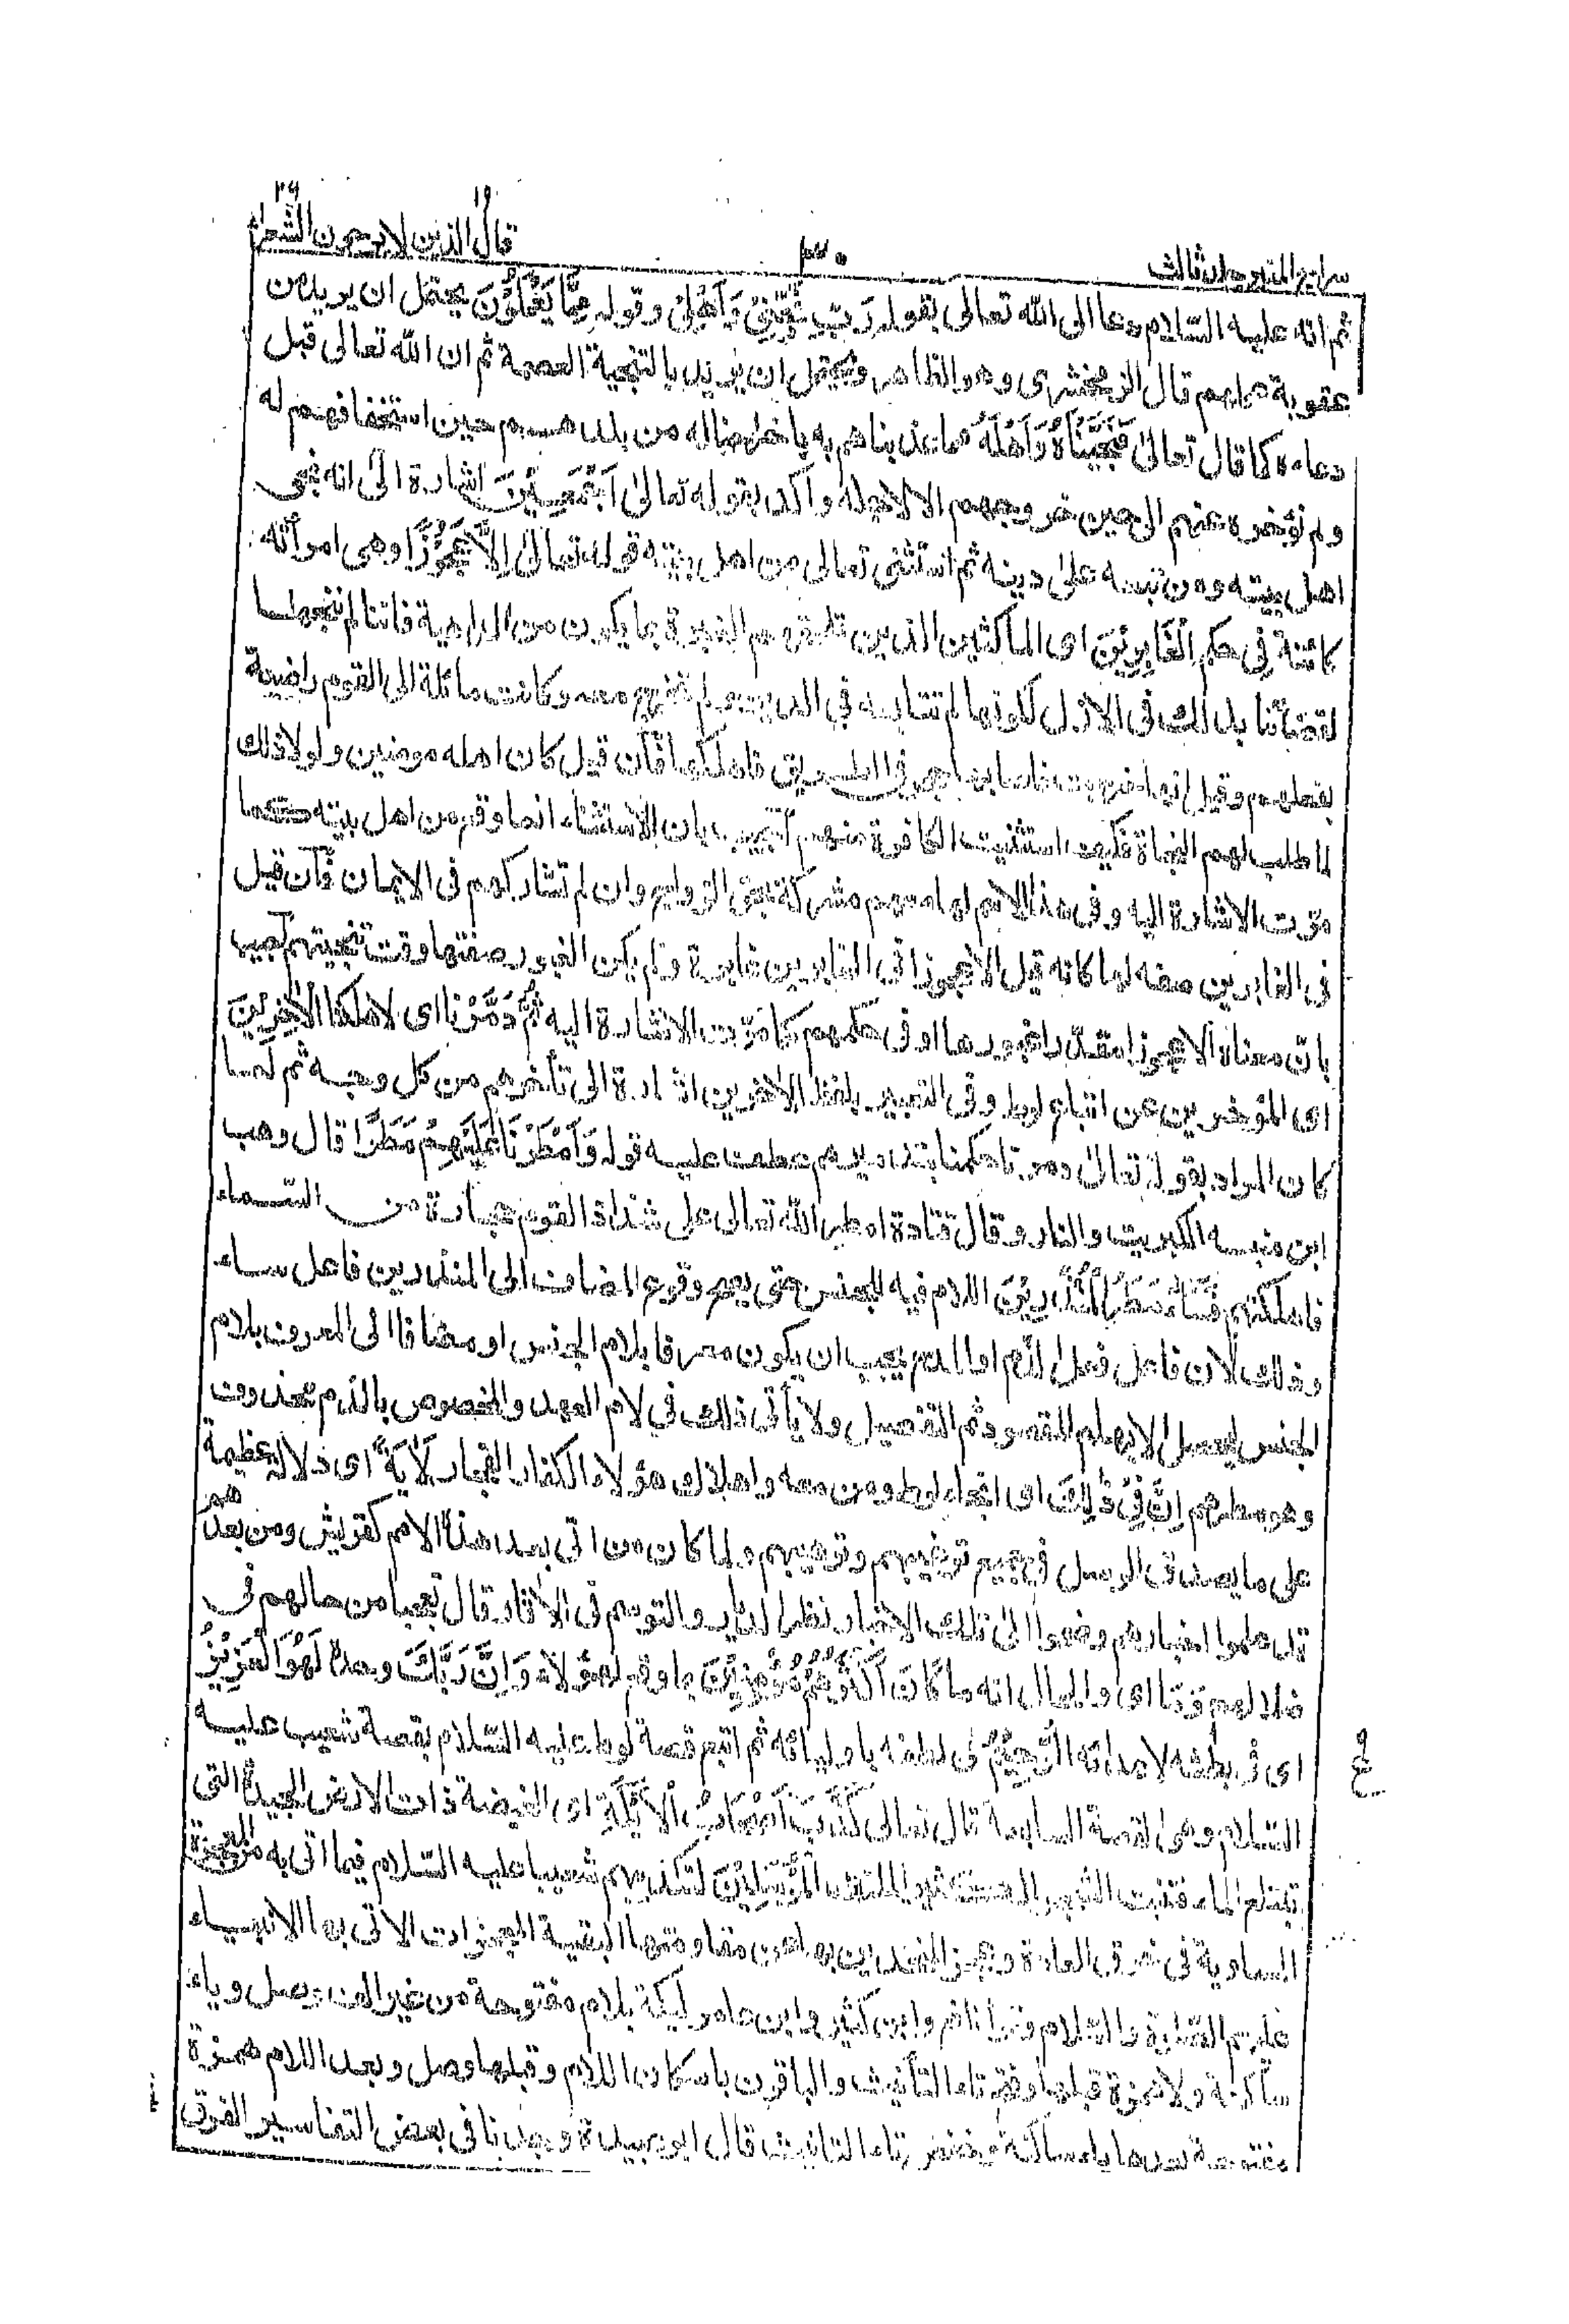 سراج المنير جلد ثالث
٣٠
قال الذين لا يرجون ١٩
الشعراء ٢٦
ثم انه عليه السلام دعا الى الله تعالى بقوله رَبِّ نَجِّنِيْ وَاَهْلِيْ وقوله مِمَّا يَعْمَلُوْنَ يحتمل ان يريد من
عقوبة عملهم قال الزمخشرى وهو الظاهر ويحتمل ان يريد بالتنجية العصمة ثم ان الله تعالى قبل
دعاءه كما قال تعالى فَنَجَّيْنَاهُ وَاَهْلَهٗ مما عذبناهم به باخراجنا له من بلدهم حين استخفافهم له
ولم نؤخره عنهم الى حين خروجهم الا لاجله واكد بقوله تعالى اَجْمَعِيْنَ اشارة الى انه نجى
اهل بيته ومن تبعه على دينه ثم استثنى تعالى من اهل بيته قوله تعالى اِلَّا عَجُوْزًا وهى امرأته
كائنة فِى حكم الْغَابِرِيْنَ اى الماكثين الذين تلحقهم الغبرة بما يكون من الداهية فاننا لم ننجها
لقضائنا بذلك فى الازل لكونها لم تتابعه في الدين ولم تخرج معه وكانت مائلة الى القوم راضية
بفعلهم وقيل انها خرجت فاصابها حجر فى الطريق فاهلكها فان قيل كان اهله مومنين ولولا ذلك
لما طلب لهم النجاة فكيف استثنيت الكافرة منهم اجيب بان الاستثناء انما وقع من اهل بيته كما
مرّت الاشارة اليه وفى هذا الاسم لها معهم شركة بحق الزواج وان لم تشاركهم فى الايمان فان قيل
فى الغابرين صفة لها كانه قيل الا عجوزا فى الغابرين غابرة ولم يكن الغبور صفتها وقت تنجيتهم اجيب
بانّ معناه الا عجوزا مقدّرا غبورها او فى حكمهم كما مرّت الاشارة اليه ثُمَّ دَمَّرْنَا اى اهلكنا الْاٰخَرِيْنَ
اى المؤخرين عن اتباع لوط وفى التعبير بلفظ الاخرين اشارة الى تأخرهم من كل وجه ثم لما
كان المراد بقوله تعالى دمرنا حكمنا بتدميرهم عطف عليه قوله وَاَمْطَرْنَا عَلَيْهِمْ مَطَرًا قال وهب
ابن منبه الكبريت والنار وقال قتادة امطر الله تعالى على شذاذ القوم حجارة من السماء
فاهلكتهم فَسَاءَ مَطَرُ الْمُنْذَرِيْنَ اللام فيه للجنس حتى يصح وقوع المضاف الى المنذرين فاعل ساء
وذلك لان فاعل فعل الذم او المدح يجب ان يكون معرفا بلام الجنس او مضافا الى المعروف بلام
الجنس ليحصل الابهام المقصود ثم التفصيل ولا يأتى ذلك في لام العهد والمخصوص بالذم محذوف
وهو مطرهم اِنَّ فِيْ ذٰلِكَ اى انجاء لوط ومن معه واهلاك هؤلاء الكفار الفجار لَاٰيَةً اى دلالة عظيمة
على ما يصدق الرسل فى جميع ترغيبهم وترهيبهم ولما كان من اتى بعد هذا الامم كقريش ومن بعدهم
قد علموا اخبارهم وضموا الى تلك الاخبار نظر الديار والتوسم فى الآثار قال تعجبا من حالهم فى
ضلالهم وَمَا اى والحال انه ما كَانَ اَكْثَرُهُمْ مُّؤْمِنِيْنَ بما وقع لهؤلاء وَاِنَّ رَبَّكَ وحده لَهُوَ الْعَزِيْزُ
اى فى بطشه لاعدائه الرَّحِيْمُ فى لطفه باوليائه ثم اتبع قصة لوط عليه السلام بقصة شعيب عليه
السلام وهى القصة السابعة قال تعالى كَذَّبَ اَصْحَابُ الْاَيْكَةِ اى الغيضة ذات الارض الجيدة التى
تبتلع الماء فتنبت الشجر الكثير الملتف الْمُرْسَلِيْنَ لتكذيبهم شعيبا عليه السلام فيما اتى به من المعجزة
المساوية فى خرق العادة وعجز المتحدين بها عن مقاومتها البقية المعجزات الاتى بها الانبياء
عليهم الصلوة والسلام وقرأ نافع وابن كثير وابن عامر ليكة بلام مفتوحة من غير الف وصل وياء
ساكنة ولا همزة قبلها وفتح تاء التأنيث والباقون باسكان اللام وقبلها وصل وبعد اللام همزة
مفتوحة بعدها ياء ساكنة وخفض تاء التانيث قال ابو عبيدة وجدنا فى بعض التفاسير الفرق
ع